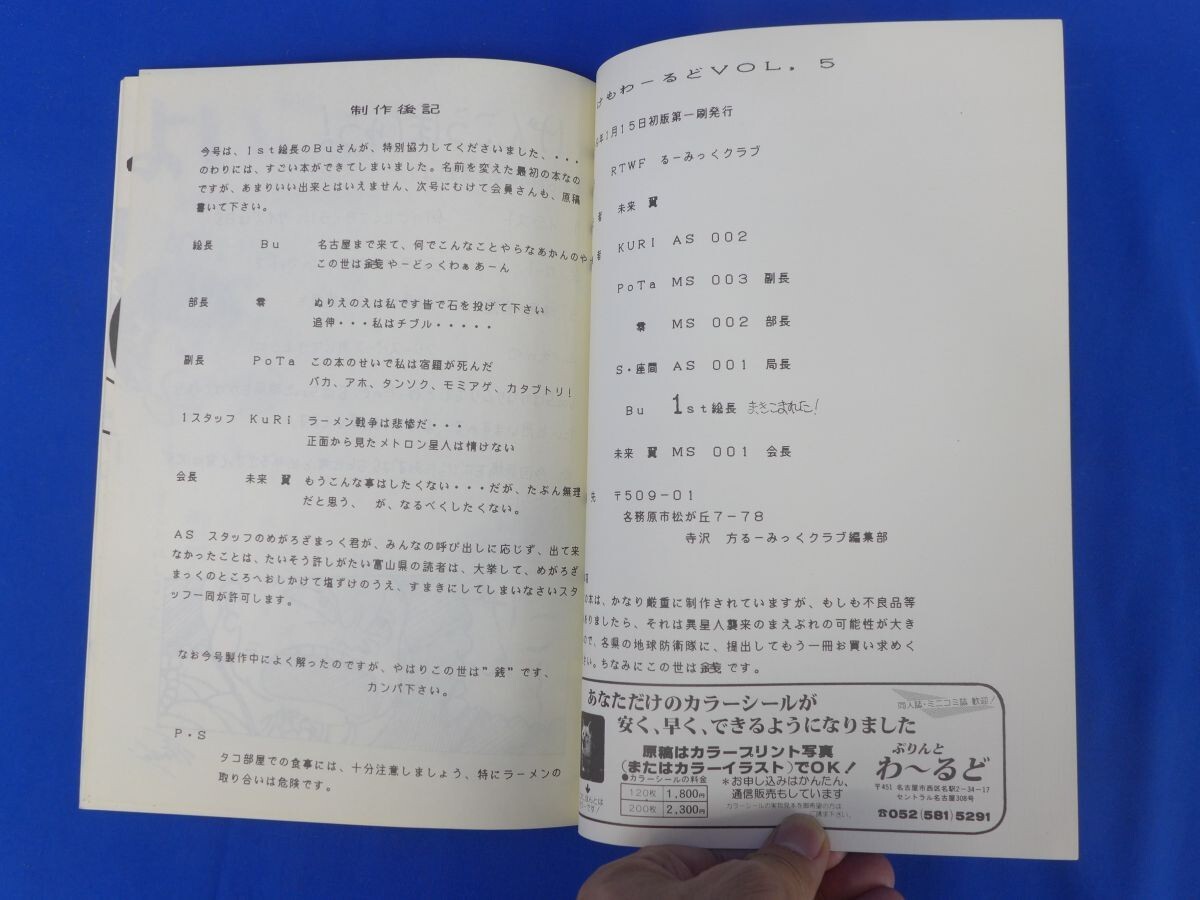 制作後記
今号は、1st絵長のBuさんが、特別協力してくださいました、・・・
のわりには、すごい本ができてしまいました。名前を変えた最初の本なの
ですが、あまりいい出来とはいえません、次号にむけて会員さんも、原稿
書いて下さい。
絵長 Bu 名古屋まで来て、何でこんなことやらなあかんのや
この世は銭やーどっくわぁあーん
部長 零 ぬりえのえは私です皆で石を投げて下さい
追伸・・・私はチブル・・・・・
副長 PoTa この本のせいで私は宿題が死んだ
バカ、アホ、タンソク、モミアゲ、カタブトリ!
1スタッフ KuRi ラーメン戦争は悲惨だ・・・
正面から見たメトロン星人は情けない
会長 未来 翼 もうこんな事はしたくない・・・だが、たぶん無理
だと思う、 が、なるべくしたくない。
AS スタッフのめがろざまっく君が、みんなの呼び出しに応じず、出て来
なかったことは、たいそう許しがたい富山県の読者は、大挙して、めがろざ
まっくのところへおしかけて塩ずけのうえ、すまきにしてしまいなさいスタ
ッフ一同が許可します。
なお今号製作中によく解ったのですが、やはりこの世は"銭"です、
カンパ下さい。
P・S
タコ部屋での食事には、十分注意しましょう、特にラーメンの
取り合いは危険です。
けもわーるどVOL.5
年1月15日初版第一刷発行
RTWF るーみっくクラブ
者 未来 翼
者 KURI AS 002
PoTa MS 003 副長
零 MS 002 部長
S・座間 AS 001 局長
Bu 1st絵長 まきこまれた!
未来 翼 MS 001 会長
先 〒509-01
各務原市松が丘7-78
寺沢 方るーみっくクラブ編集部
の本は、かなり厳重に制作されていますが、もしも不良品等
ありましたら、それは異星人襲来のまえぶれの可能性が大き
ので、各県の地球防衛隊に、提出してもう一冊お買い求めく
さい。ちなみにこの世は銭です。
あなただけのカラーシールが
安く、早く、できるようになりました
同人誌・ミニコミ誌 歓迎!
原稿はカラープリント写真
(またはカラーイラスト)でOK!
●カラーシールの料金
120枚 1,800円
200枚 2,300円
*お申し込みはかんたん、
通信販売もしています
カラーシールの実物見本を御希望の方は
ご請求下さい。
ぷりんと
わ〜るど
〒451 名古屋市西区名駅2-34-17
セントラル名古屋308号
☎052(581)5291